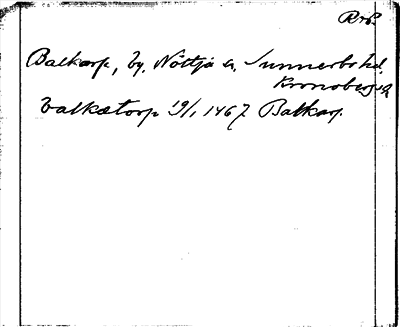 RrP.
Balkarp, by, Nöttja sn, Sunnerbo hd,
Kronobergs l.
balkatorp 19/1 1467 Balkarp.